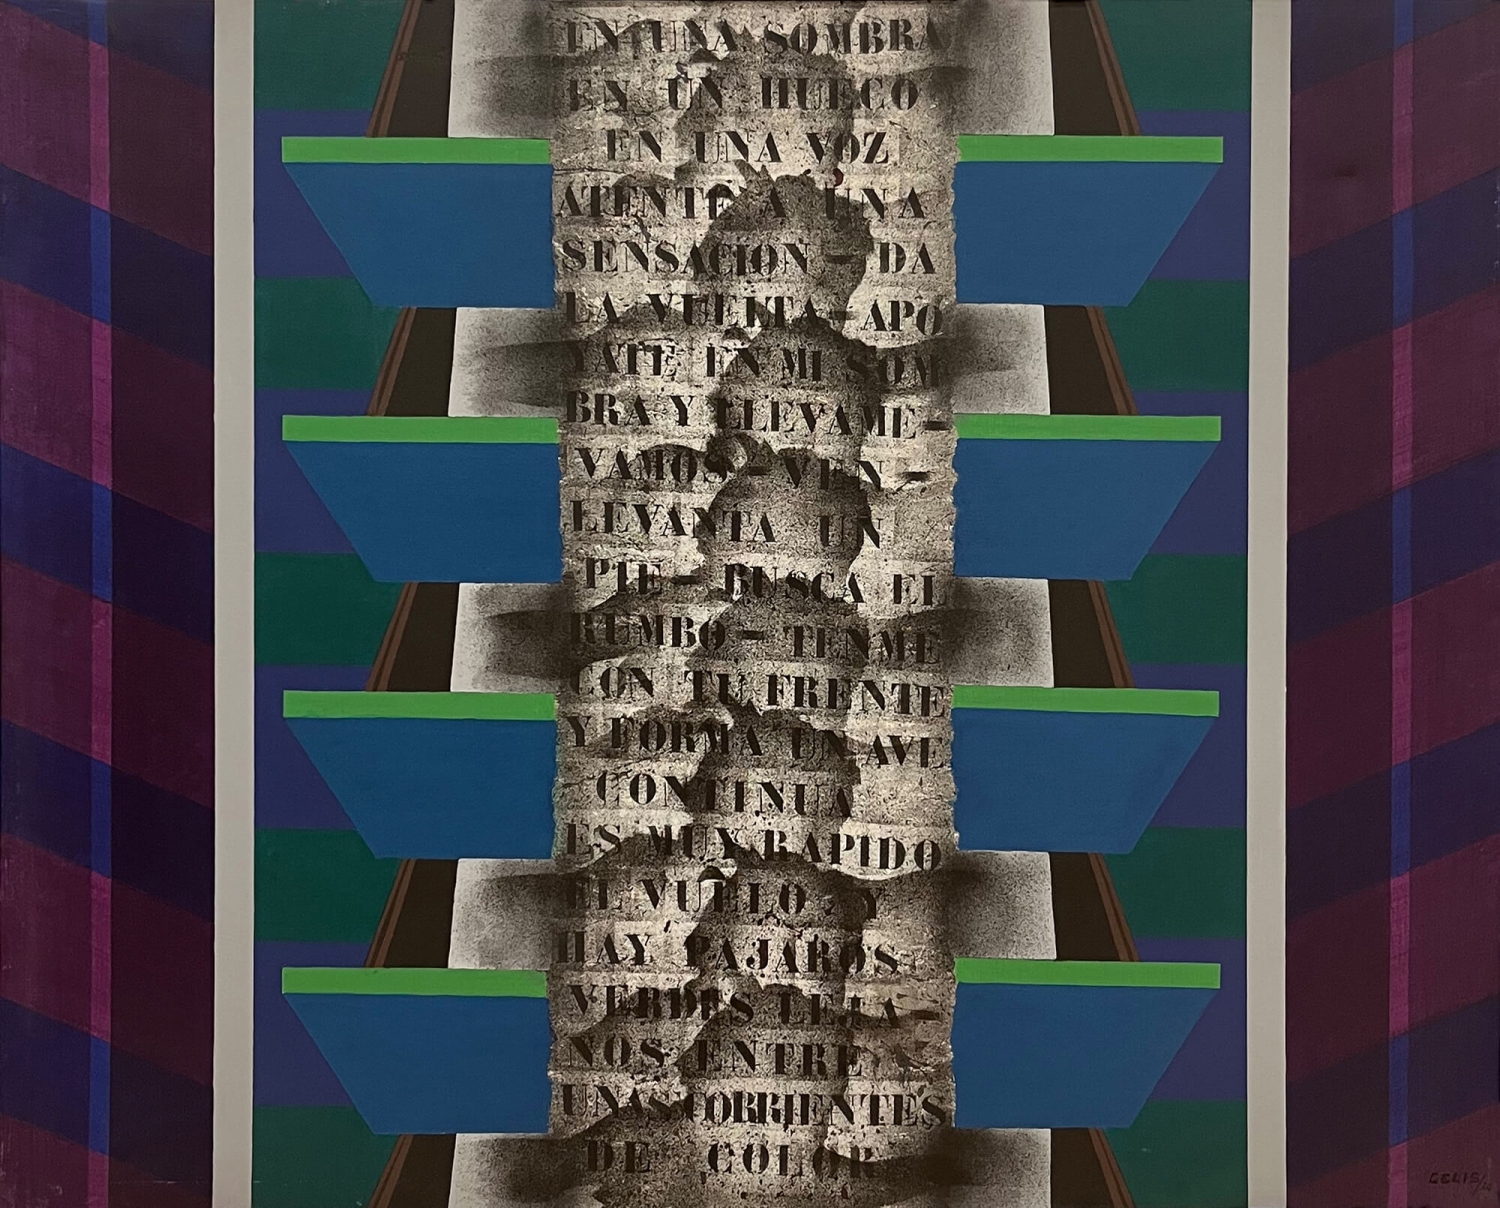 EN UNA SOMBRA
EN UN HUECO
EN UNA VOZ
ATENTE A UNA
SENSACION - DA
LA VUELTA - APO
YATE EN MI SOM
BRA Y LLEVAME -
VAMOS - VEN -
LEVANTA UN
PIE - BUSCA EL
RUMBO - TENME
CON TU FRENTE
Y FORMA UN AVE
CONTINUA
ES MUY RAPIDO
EL VUELO Y
HAY PAJAROS
VERDES LEJA -
NOS ENTRE
UNAS CORRIENTES
DE COLOR
CELIS